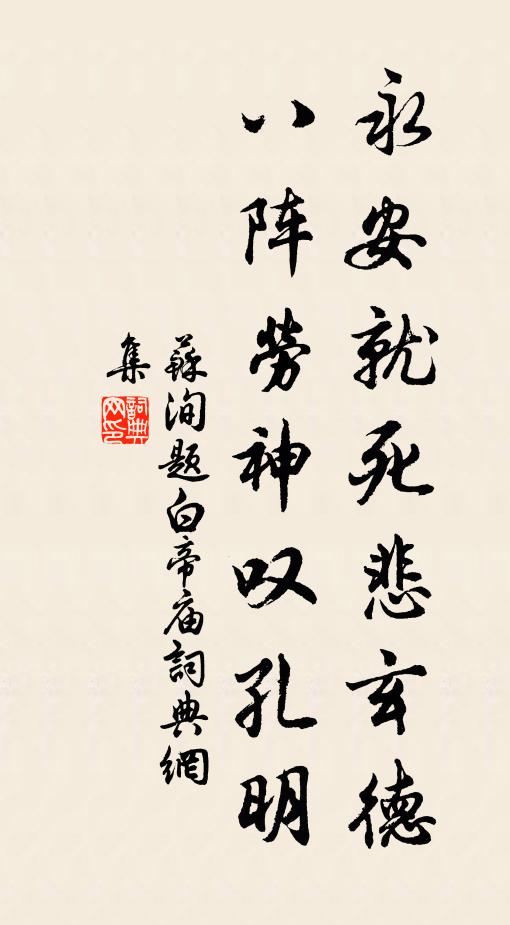 永安就死悲玄德
八阵劳神叹孔明
蘇洵题白帝庙詞典網
集
詞典网印